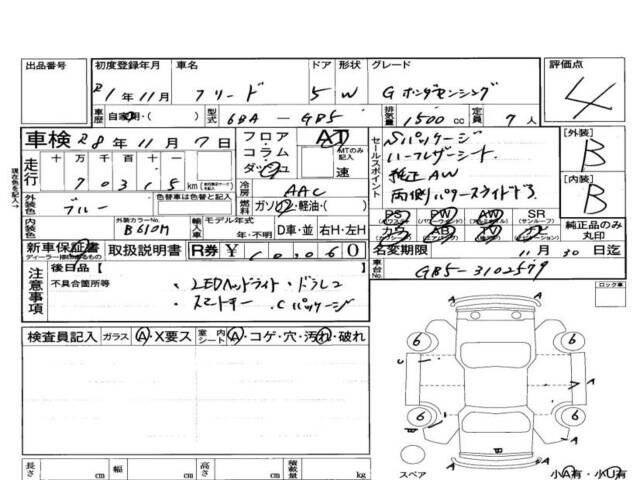 出品番号 初度登録年月 車名 ドア 形状 グレード 評価点
R1年11月 フリード 5 W Gホンダセンシング 4
車歴 自家用・( ) 型式 6BA-GB5 排気量 1500cc 定員 7人
車検 R8年11月7日 フロア AT セールスポイント Sパッケージ [外装]
コラム MTのみ記入 ハーフレザーシート B
走行 十万 万 千 百 十 一 ダッシュ 速 純正AW
70315km 冷房 AAC 両側パワースライドドア [内装]
外装色 ブルー 色替車は色替色と記入 燃料 ガソリン・軽油・( ) B
内装色 外装カラーNo. B610M 輸入車 モデル年式 PS PW AW SR
年・不明 D車・並 右H・左H (パワステ) (パワーウィンドウ) (アルミホイール) (サンルーフ) 純正品のみ丸印
カワ AB TV ナビ
新車保証書 取扱説明書 R券 ¥ 名変期限 11月30日迄
ディーラー捺印あるもの
注意事項 後日品[ 車台No. GB5-3102579
不具合箇所等 ・LEDヘッドライト・ドラレコ
・スマートキー ・Cパッケージ ロック車
検査員記入 ガラス A・X要ス 室内シート A・コゲ・穴・汚れ・破れ
現在色を記入→
A A
U
6 6
A
A
6 6
A A
スペア 小A有・小U有
長さ cm 幅 cm 高さ cm 積載量 kg